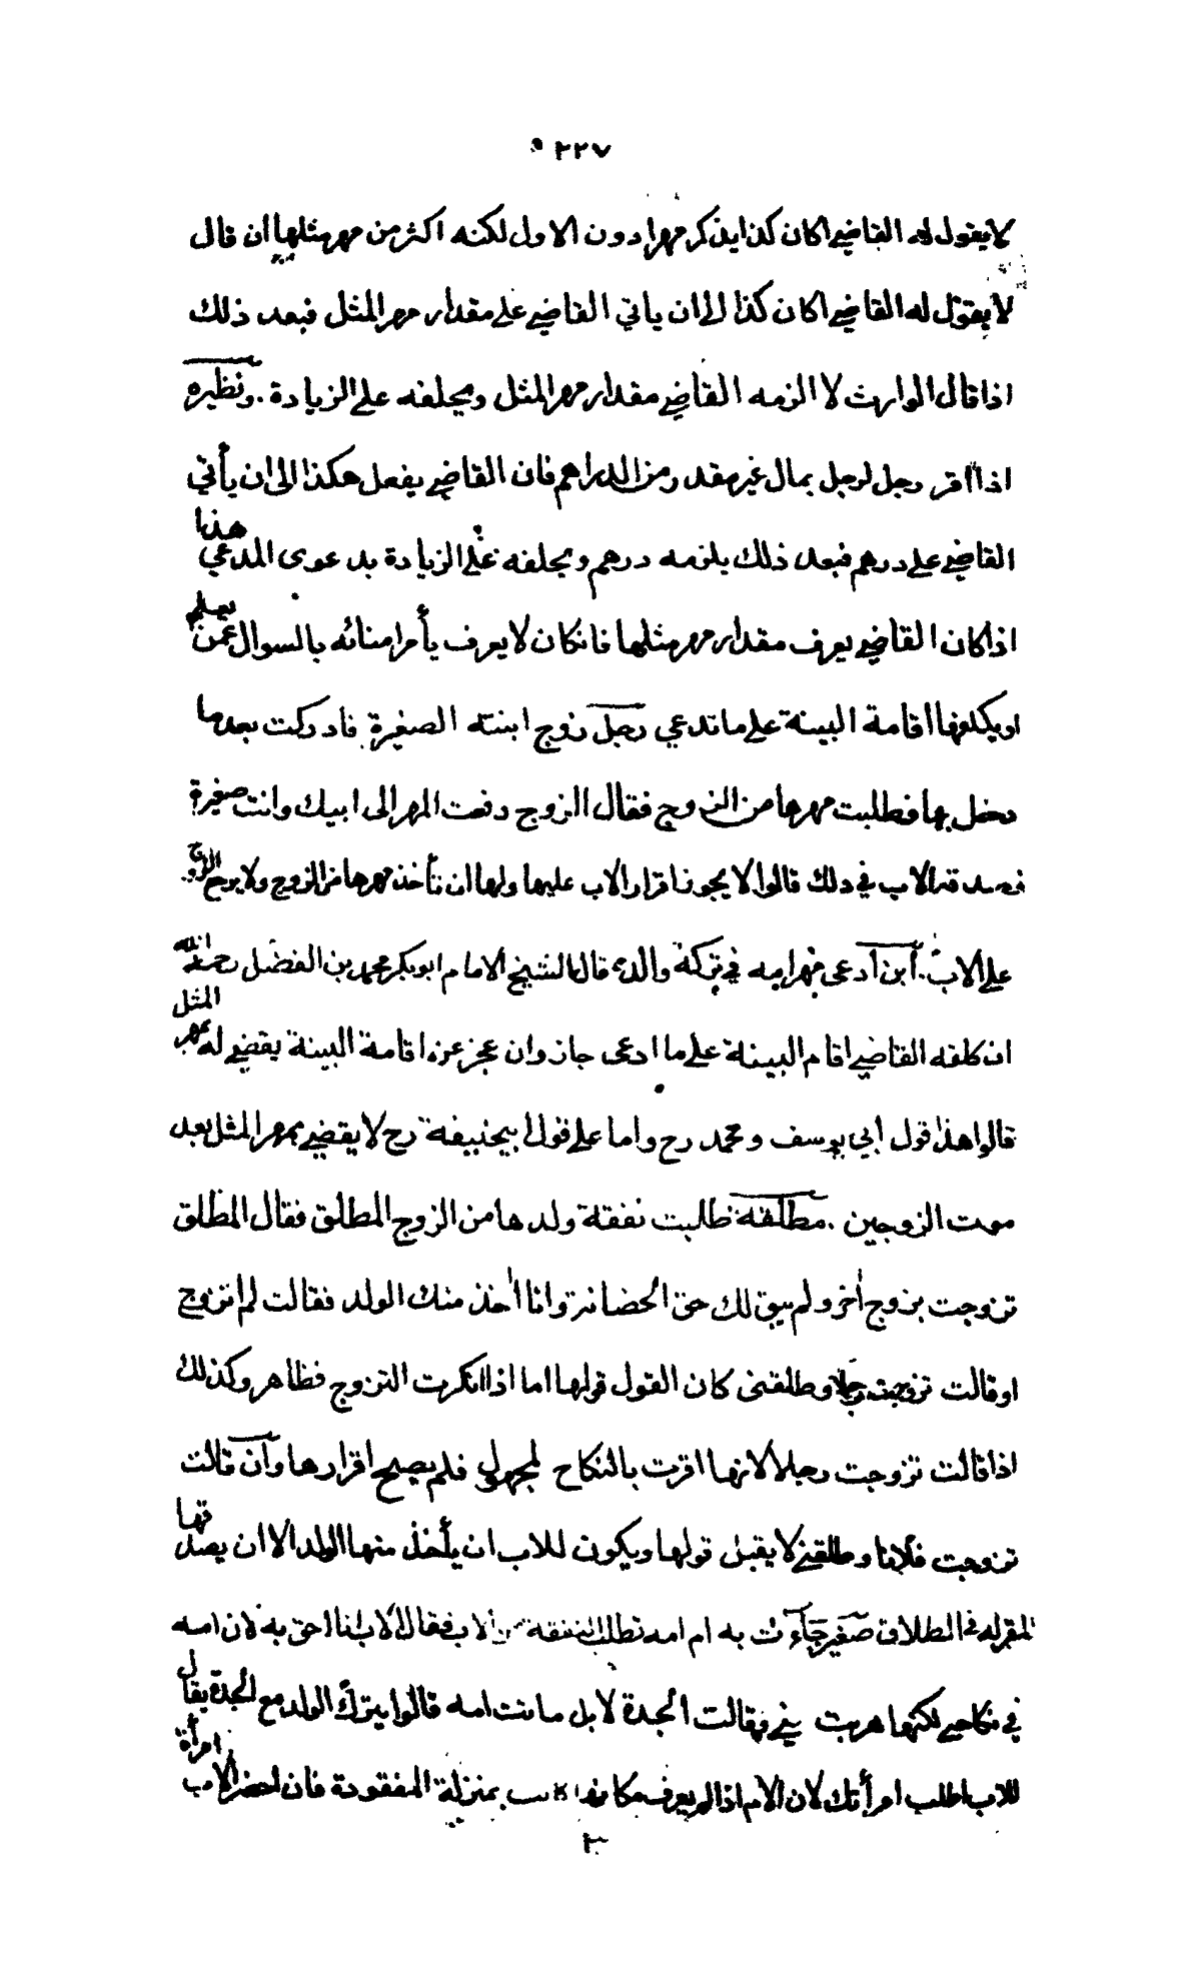 ٢٢٧
لا يقول له القاضي اكان كذا يذكر مهرا دون الاول لكنه اكثر من مهر مثلها ان قال
لا يقول له القاضي اكان كذا الى ان ياتي القاضي على مقدار مهر المثل فبعد ذلك
اذا قال الوارث لا الزمه القاضي مقدار مهر المثل ويحلفه على الزيادة . ونظيره
اذا اقر رجل لرجل بمال غير مقدر من الدراهم فان القاضي يفعل هكذا الى ان يأتي
القاضي على درهم فبعد ذلك يلزمه درهم ويحلفه على الزيادة بدعوى المدعي هذا
اذا كان القاضي يعرف مقدار مهر مثلها فانكان لا يعرف يأمر امنائه بالسوال عمن يعلم
او يكلفها اقامة البينة على ما تدعي رجل زوج ابنته الصغيرة فادركت بعدما
دخل بها فطلبت مهرها من الزوج فقال الزوج دفعت المهر الى ابيك وانت صغيرة
فصدقه الاب في ذلك قالوا لا يجوز اقرار الاب عليها ولها ان تأخذ مهرها من الزوج ولا يرجع الزوج
على الاب . ابن ادعى مهر امه في تركة والده قال الشيخ الامام ابو بكر محمد بن الفضل رحمه الله
ان كلفه القاضي اقام البينة على ما ادعى جاز وان عجز عن اقامة البينة يقضي له بمهر المثل
قالوا هذا قول ابي يوسف و محمد رح واما على قول ابيحنيفة رح لا يقضي بمهر المثل بعد
موت الزوجين . مطلقة طلبت نفقة ولدها من الزوج المطلق فقال المطلق
تزوجت بزوج اخر ولم يبق لك حق الحضانة وانا اخذ منك الولد فقالت لم اتزوج
او قالت تزوجت رجلا وطلقنى كان القول قولها اما اذا انكرت التزوج فظاهر وكذلك
اذا قالت تزوجت رجلا لانها اقرت بالنكاح لمجهول فلم يصح اقرارها وان قالت
تزوجت فلانا وطلقني لا يقبل قولها ويكون للاب ان يأخذ منها الولد الا ان يصدقها
المقر له في الطلاق صغير جاءت به ام امه تطلب النفقة من الاب فقال الاب انا احق به لان امه
في نكاحي لكنها هربت مني وقالت الجدة لا بل ماتت امه قالوا يترك الولد مع الجدة يقال
للاب اطلب امرأتك لان الام اذا لم يعرف مكانها كانت بمنزلة المفقودة فان احضر الاب امرأة